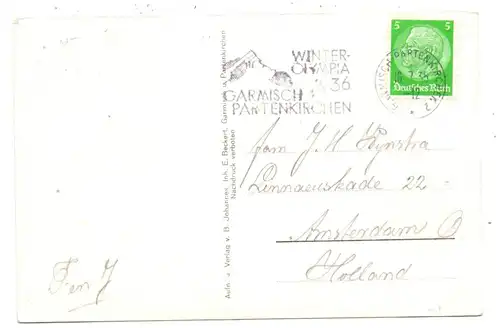 WINTER-
OLYMPIA
36
GARMISCH
PARTENKIRCHEN
5 5
Deutsches Reich
GARMISCH-PARTENKIRCHEN 2
12
Aufn. u. Verlag v. B. Johannes, Inh. E. Beckert, Garmisch-Partenkirchen
Nachdruck verboten
fam J H Kynstra
Linnaeuskade 22 =
Amsterdam O
Holland